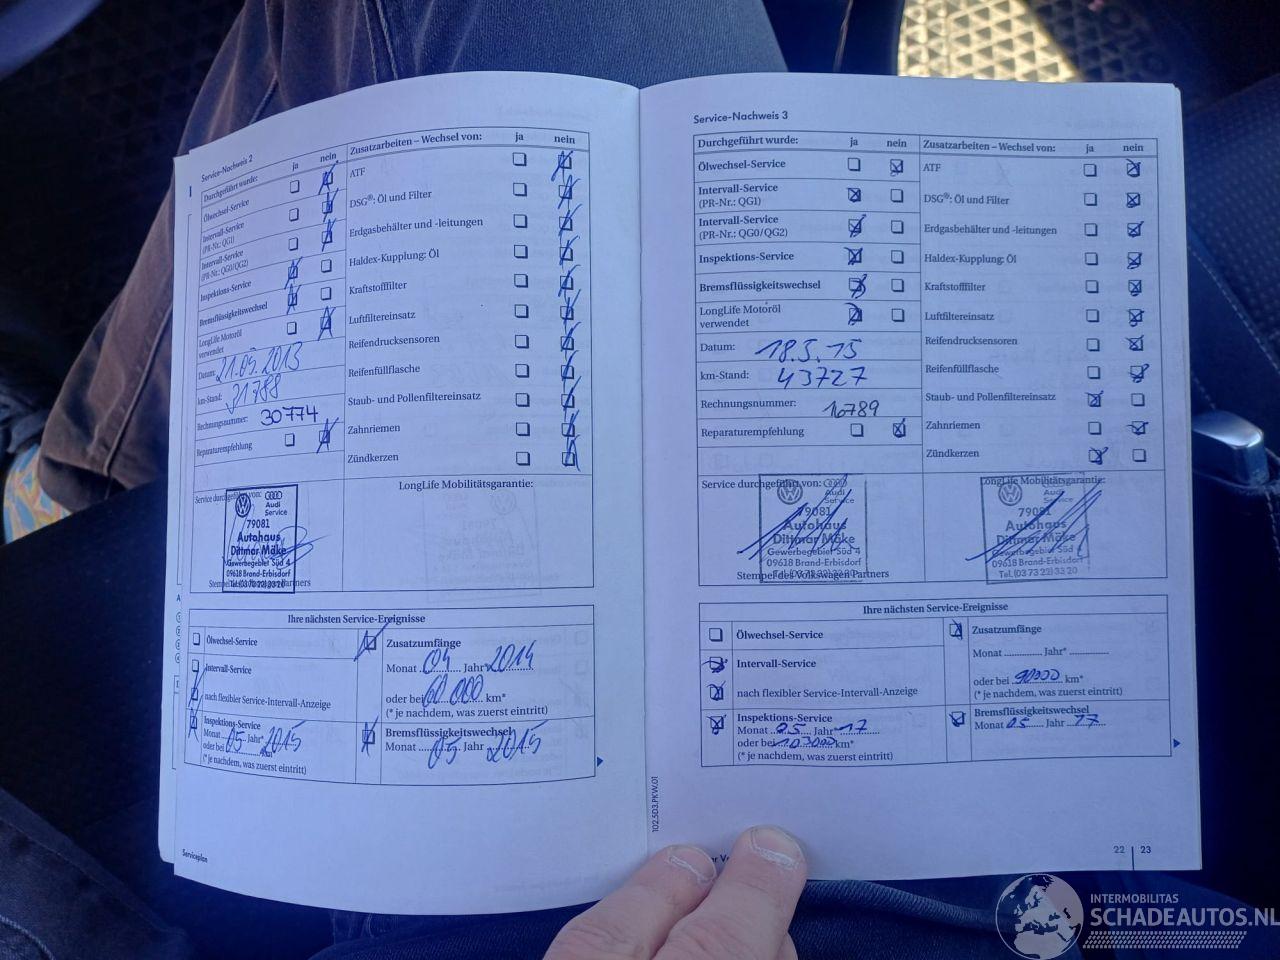 Service-Nachweis 2
Durchgeführt wurde: ja nein
Ölwechsel-Service
Intervall-Service
(PR-Nr.: QG1)
Intervall-Service
(PR-Nr.: QG0/QG2)
Inspektions-Service
Bremsflüssigkeitswechsel
LongLife Motoröl
verwendet
Datum: 21.05.2013
km-Stand: 31788
Rechnungsnummer: 30774
Reparaturempfehlung
Zusatzarbeiten – Wechsel von: ja nein
ATF
DSG®: Öl und Filter
Erdgasbehälter und -leitungen
Haldex-Kupplung: Öl
Kraftstofffilter
Luftfiltereinsatz
Reifendrucksensoren
Reifenfüllflasche
Staub- und Pollenfiltereinsatz
Zahnriemen
Zündkerzen
Service durchgeführt von:
Audi
Service
79081
Autohaus
Dittmar Mäke
Gewerbegebiet Süd 4
09618 Brand-Erbisdorf
Tel. (03 73 22) 33 20
Stempel des Volkswagen Partners
LongLife Mobilitätsgarantie:
Ihre nächsten Service-Ereignisse
Ölwechsel-Service
Intervall-Service
nach flexibler Service-Intervall-Anzeige
Inspektions-Service
Monat 05 Jahr* 2015
oder bei km*
(* je nachdem, was zuerst eintritt)
Zusatzumfänge
Monat 04 Jahr* 2014
oder bei 60 000 km*
(* je nachdem, was zuerst eintritt)
Bremsflüssigkeitswechsel
Monat 05 Jahr 2015
Serviceplan
Service-Nachweis 3
Durchgeführt wurde: ja nein
Ölwechsel-Service
Intervall-Service
(PR-Nr.: QG1)
Intervall-Service
(PR-Nr.: QG0/QG2)
Inspektions-Service
Bremsflüssigkeitswechsel
LongLife Motoröl
verwendet
Datum: 18.5.15
km-Stand: 43727
Rechnungsnummer: 16789
Reparaturempfehlung
Zusatzarbeiten – Wechsel von: ja nein
ATF
DSG®: Öl und Filter
Erdgasbehälter und -leitungen
Haldex-Kupplung: Öl
Kraftstofffilter
Luftfiltereinsatz
Reifendrucksensoren
Reifenfüllflasche
Staub- und Pollenfiltereinsatz
Zahnriemen
Zündkerzen
Service durchgeführt von:
Audi
Service
79081
Autohaus
Dittmar Mäke
Gewerbegebiet Süd 4
09618 Brand-Erbisdorf
Tel. (03 73 22) 33 20
Stempel des Volkswagen Partners
LongLife Mobilitätsgarantie:
Audi
Service
79081
Autohaus
Dittmar Mäke
Gewerbegebiet Süd 4
09618 Brand-Erbisdorf
Tel. (03 73 22) 33 20
Ihre nächsten Service-Ereignisse
Ölwechsel-Service
Intervall-Service
nach flexibler Service-Intervall-Anzeige
Inspektions-Service
Monat 05 Jahr* 17
oder bei 103000 km*
(* je nachdem, was zuerst eintritt)
Zusatzumfänge
Monat Jahr*
oder bei 90000 km*
(* je nachdem, was zuerst eintritt)
Bremsflüssigkeitswechsel
Monat 05 Jahr 17
102.5D3.PKW.01
22 23
INTERMOBILITAS
SCHADEAUTOS.NL